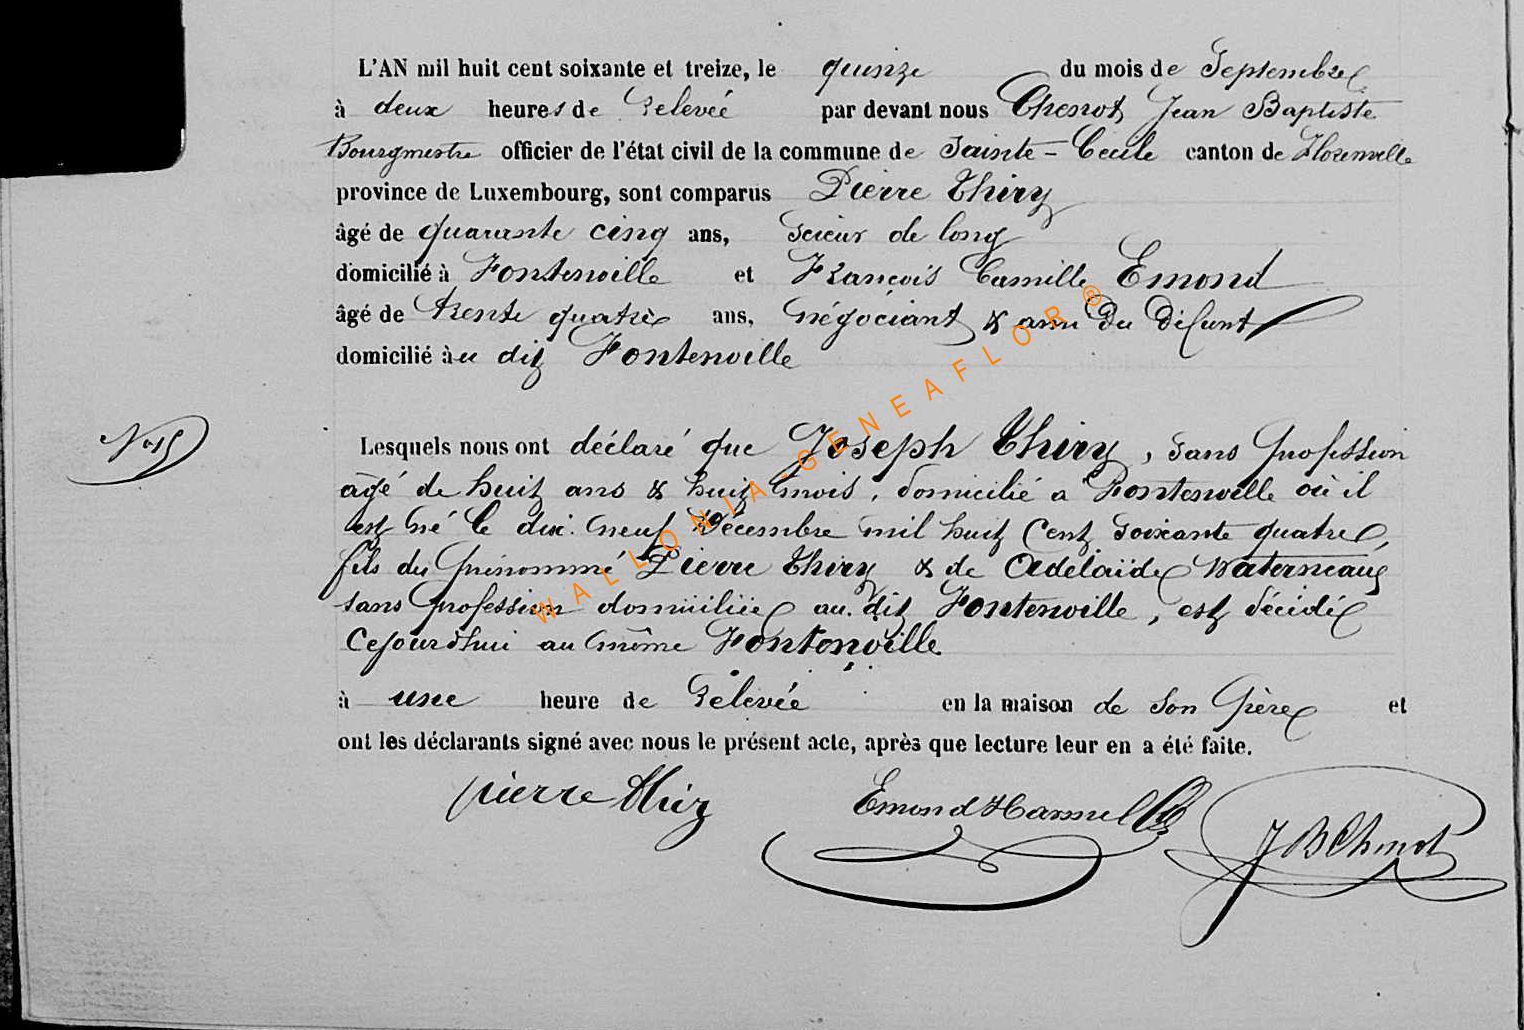 L'AN mil huit cent soixante et treize, le quinze du mois de Septembre
à deux heures de relevée par devant nous Chenot Jean Baptiste
Bourgmestre officier de l'état civil de la commune de Sainte-Cécile canton de Florenville
province de Luxembourg, sont comparus Pierre Thiry
âgé de quarante cinq ans, scieur de long
domicilié à Fontenoille et François Camille Emond
âgé de trente quatre ans, négociant & ami du défunt
domicilié au dit Fontenoille
Lesquels nous ont déclaré que Joseph Thiry, sans profession
N° 15
âgé de huit ans & huit mois, domicilié à Fontenoille où il
est né le dix neuf Décembre mil huit cent soixante quatre,
fils du prénommé Pierre Thiry & de Adélaïde Waterneaux
sans profession domiciliée au dit Fontenoille, est décédé
cejourd'hui au même Fontenoille
à une heure de relevée en la maison de son père et
ont les déclarants signé avec nous le présent acte, après que lecture leur en a été faite.
pierre thiry Emond J B Chenot
WALLONIA-GENEAFLOR®